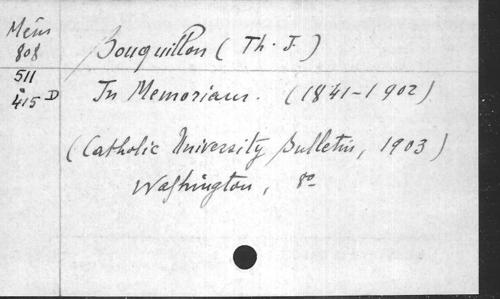 Mém
808
511
415 D
Bouquillon (Th. J.)
In Memoriam. (1841-1902)
(Catholic University Bulletin, 1903)
Washington, 8º